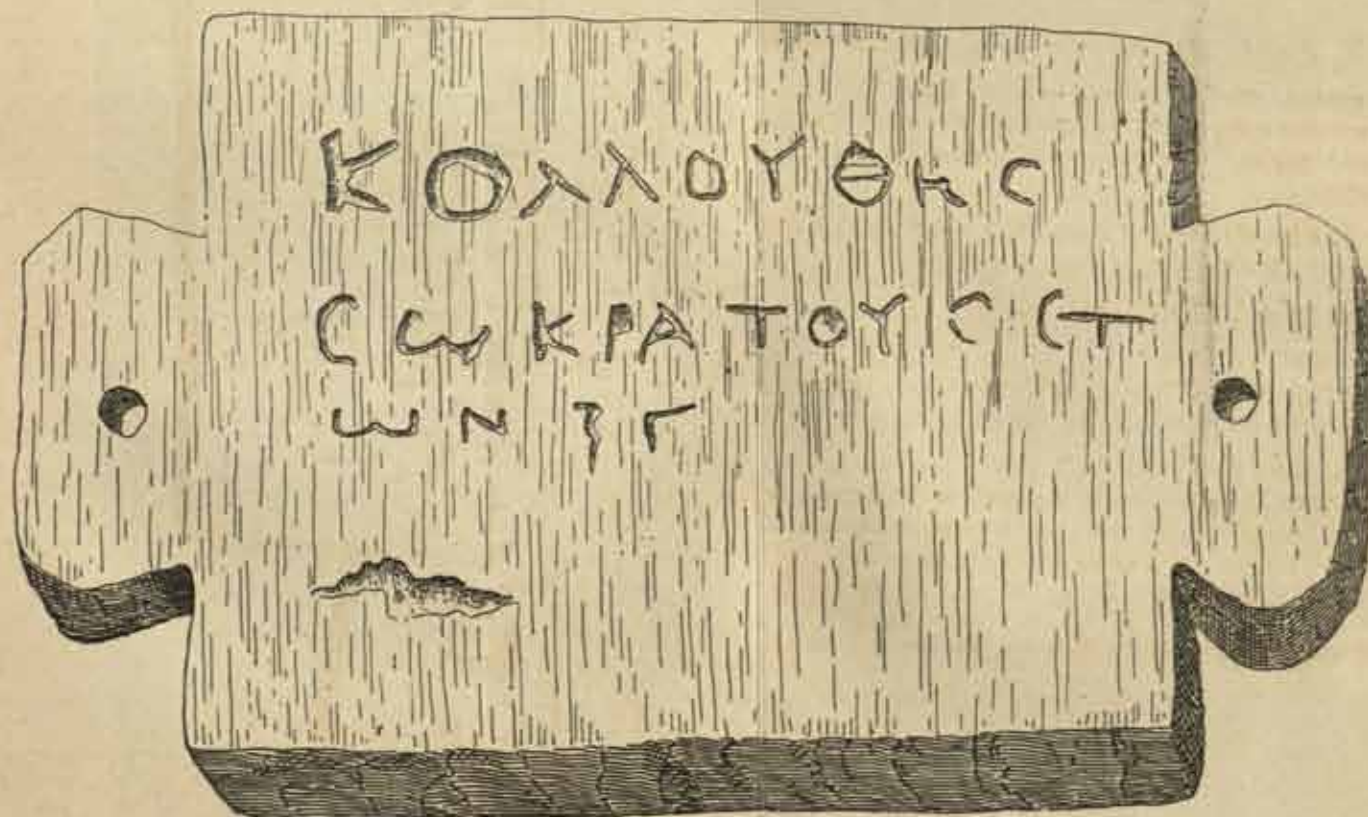 ΚΟΛΛΟΥΘΗϹ
ϹΩΚΡΑΤΟΥϹ ΕΤ
ΩΝ ΞΓ